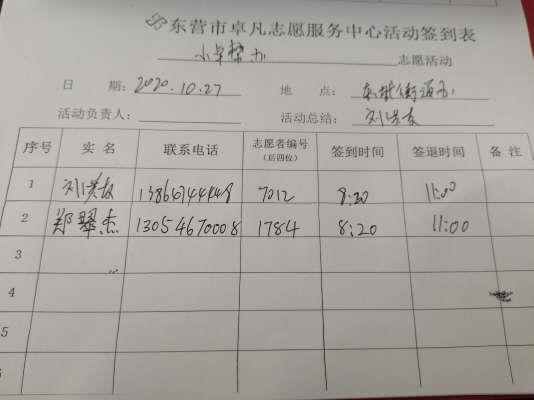 东营市卓凡志愿服务中心活动签到表
小卓帮办 志愿活动
日 期：2020.10.27 地 点：街道办
活动负责人： 活动总结：刘洪友
序号 实 名 联系电话 志愿者编号（后四位） 签到时间 签退时间 备 注
1 刘洪友 7012 8:20 11:00
2 郑翠杰 13054670008 1784 8:20 11:00
3
4
5